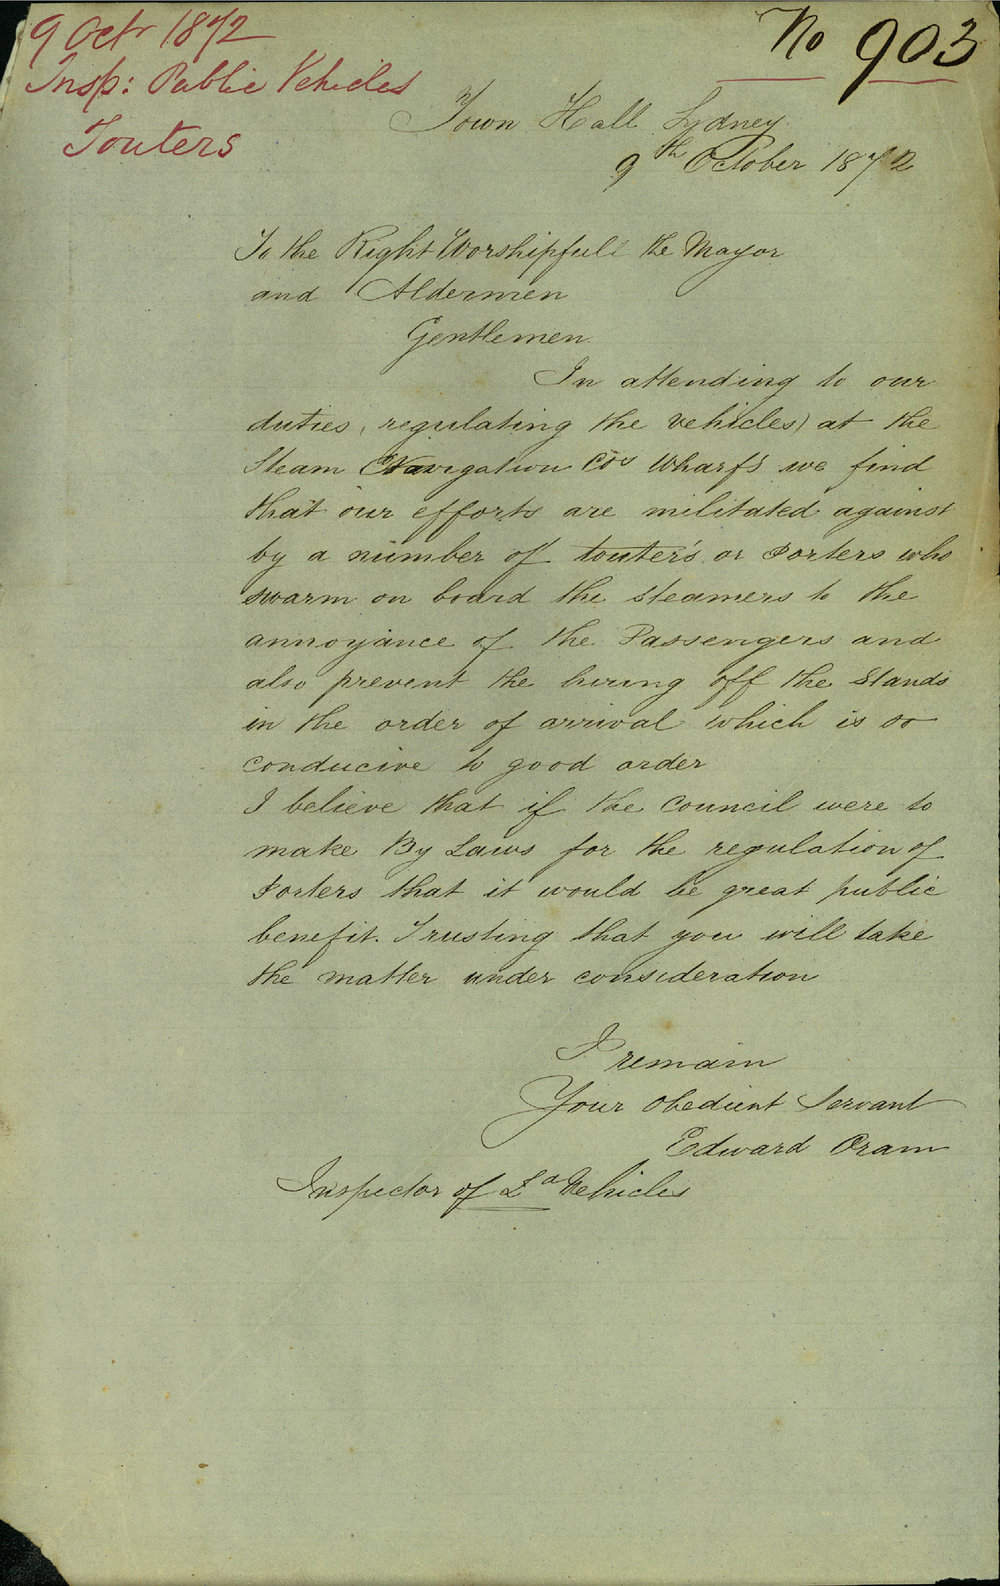 9 Octr 1872
Insp: Public Vehicles
Touters
No 903
Town Hall Sydney.
9th October 1872
To the Right Worshipfull the Mayor
and Aldermen
Gentlemen.
In attending to our
duties, regulating the vehicles) at the
Steam Navigation Cos Wharfs we find
that our efforts are militated against
by a number of touter's or Porters who
swarm on board the steamers to the
annoyance of the Passengers and
also prevent the hiring off the Stands
in the order of arrival which is so
conducive to good order
I believe that if the Council were to
make By Laws for the regulation of
Porters that it would be great public
benefit. Trusting that you will take
the matter under consideration
I remain
Your Obedient Servant
Edward Oram
Inspector of Ld Vehicles